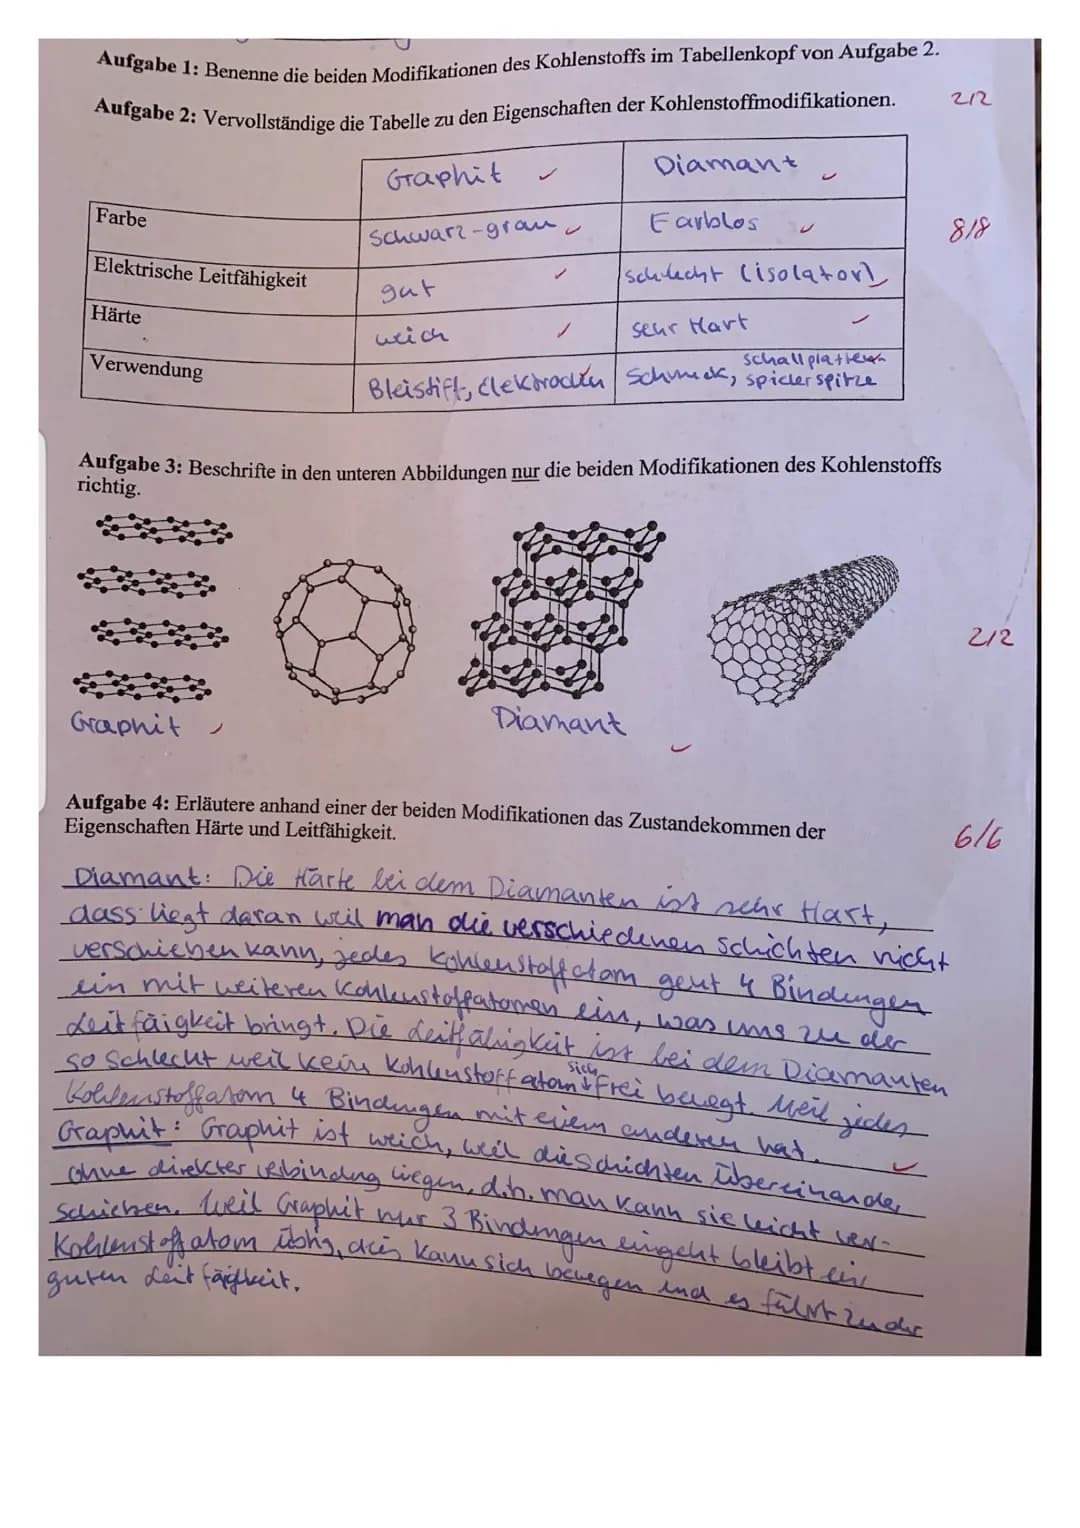 Aufgabe 1: Benenne die beiden Modifikationen des Kohlenstoffs im Tabellenkopf von Aufgabe 2.
Aufgabe 2: Vervollständige die Tabelle zu den Eigenschaften der Kohlenstoffmodifikationen. 2/2
Graphit Diamant
Farbe schwarz-grau Farblos 8/8
Elektrische Leitfähigkeit gut schlecht (isolator)
Härte weich sehr Hart
Verwendung Bleistift, Elektroden Schmuck, schallplatten spielerspitze
Aufgabe 3: Beschrifte in den unteren Abbildungen nur die beiden Modifikationen des Kohlenstoffs
richtig.
2/2
Graphit Diamant
Aufgabe 4: Erläutere anhand einer der beiden Modifikationen das Zustandekommen der
Eigenschaften Härte und Leitfähigkeit. 6/6
Diamant: Die Härte bei dem Diamanten ist sehr Hart,
dass liegt daran weil man die verschiedenen schichten nicht
verschieben kann, jedes Kohlenstoffatom geht 4 Bindungen
ein mit weiteren Kohlenstoffatomen ein, was uns zu der
Leitfäigkeit bringt. Die Leitfähigkeit ist bei dem Diamanten
so schlecht weil kein Kohlenstoffatom sich frei bewegt. Weil jedes
Kohlenstoffatom 4 Bindungen mit einem anderen hat.
Graphit: Graphit ist weich, weil die Schichten Übereinander
ohne direkter verbindung liegen, d.h. man kann sie leicht ver-
schieben. Weil Graphit nur 3 Bindungen eingeht bleibt ein
Kohlenstoffatom übrig, dies kann sich bewegen und es führt zu der
guten Leitfäigkeit.